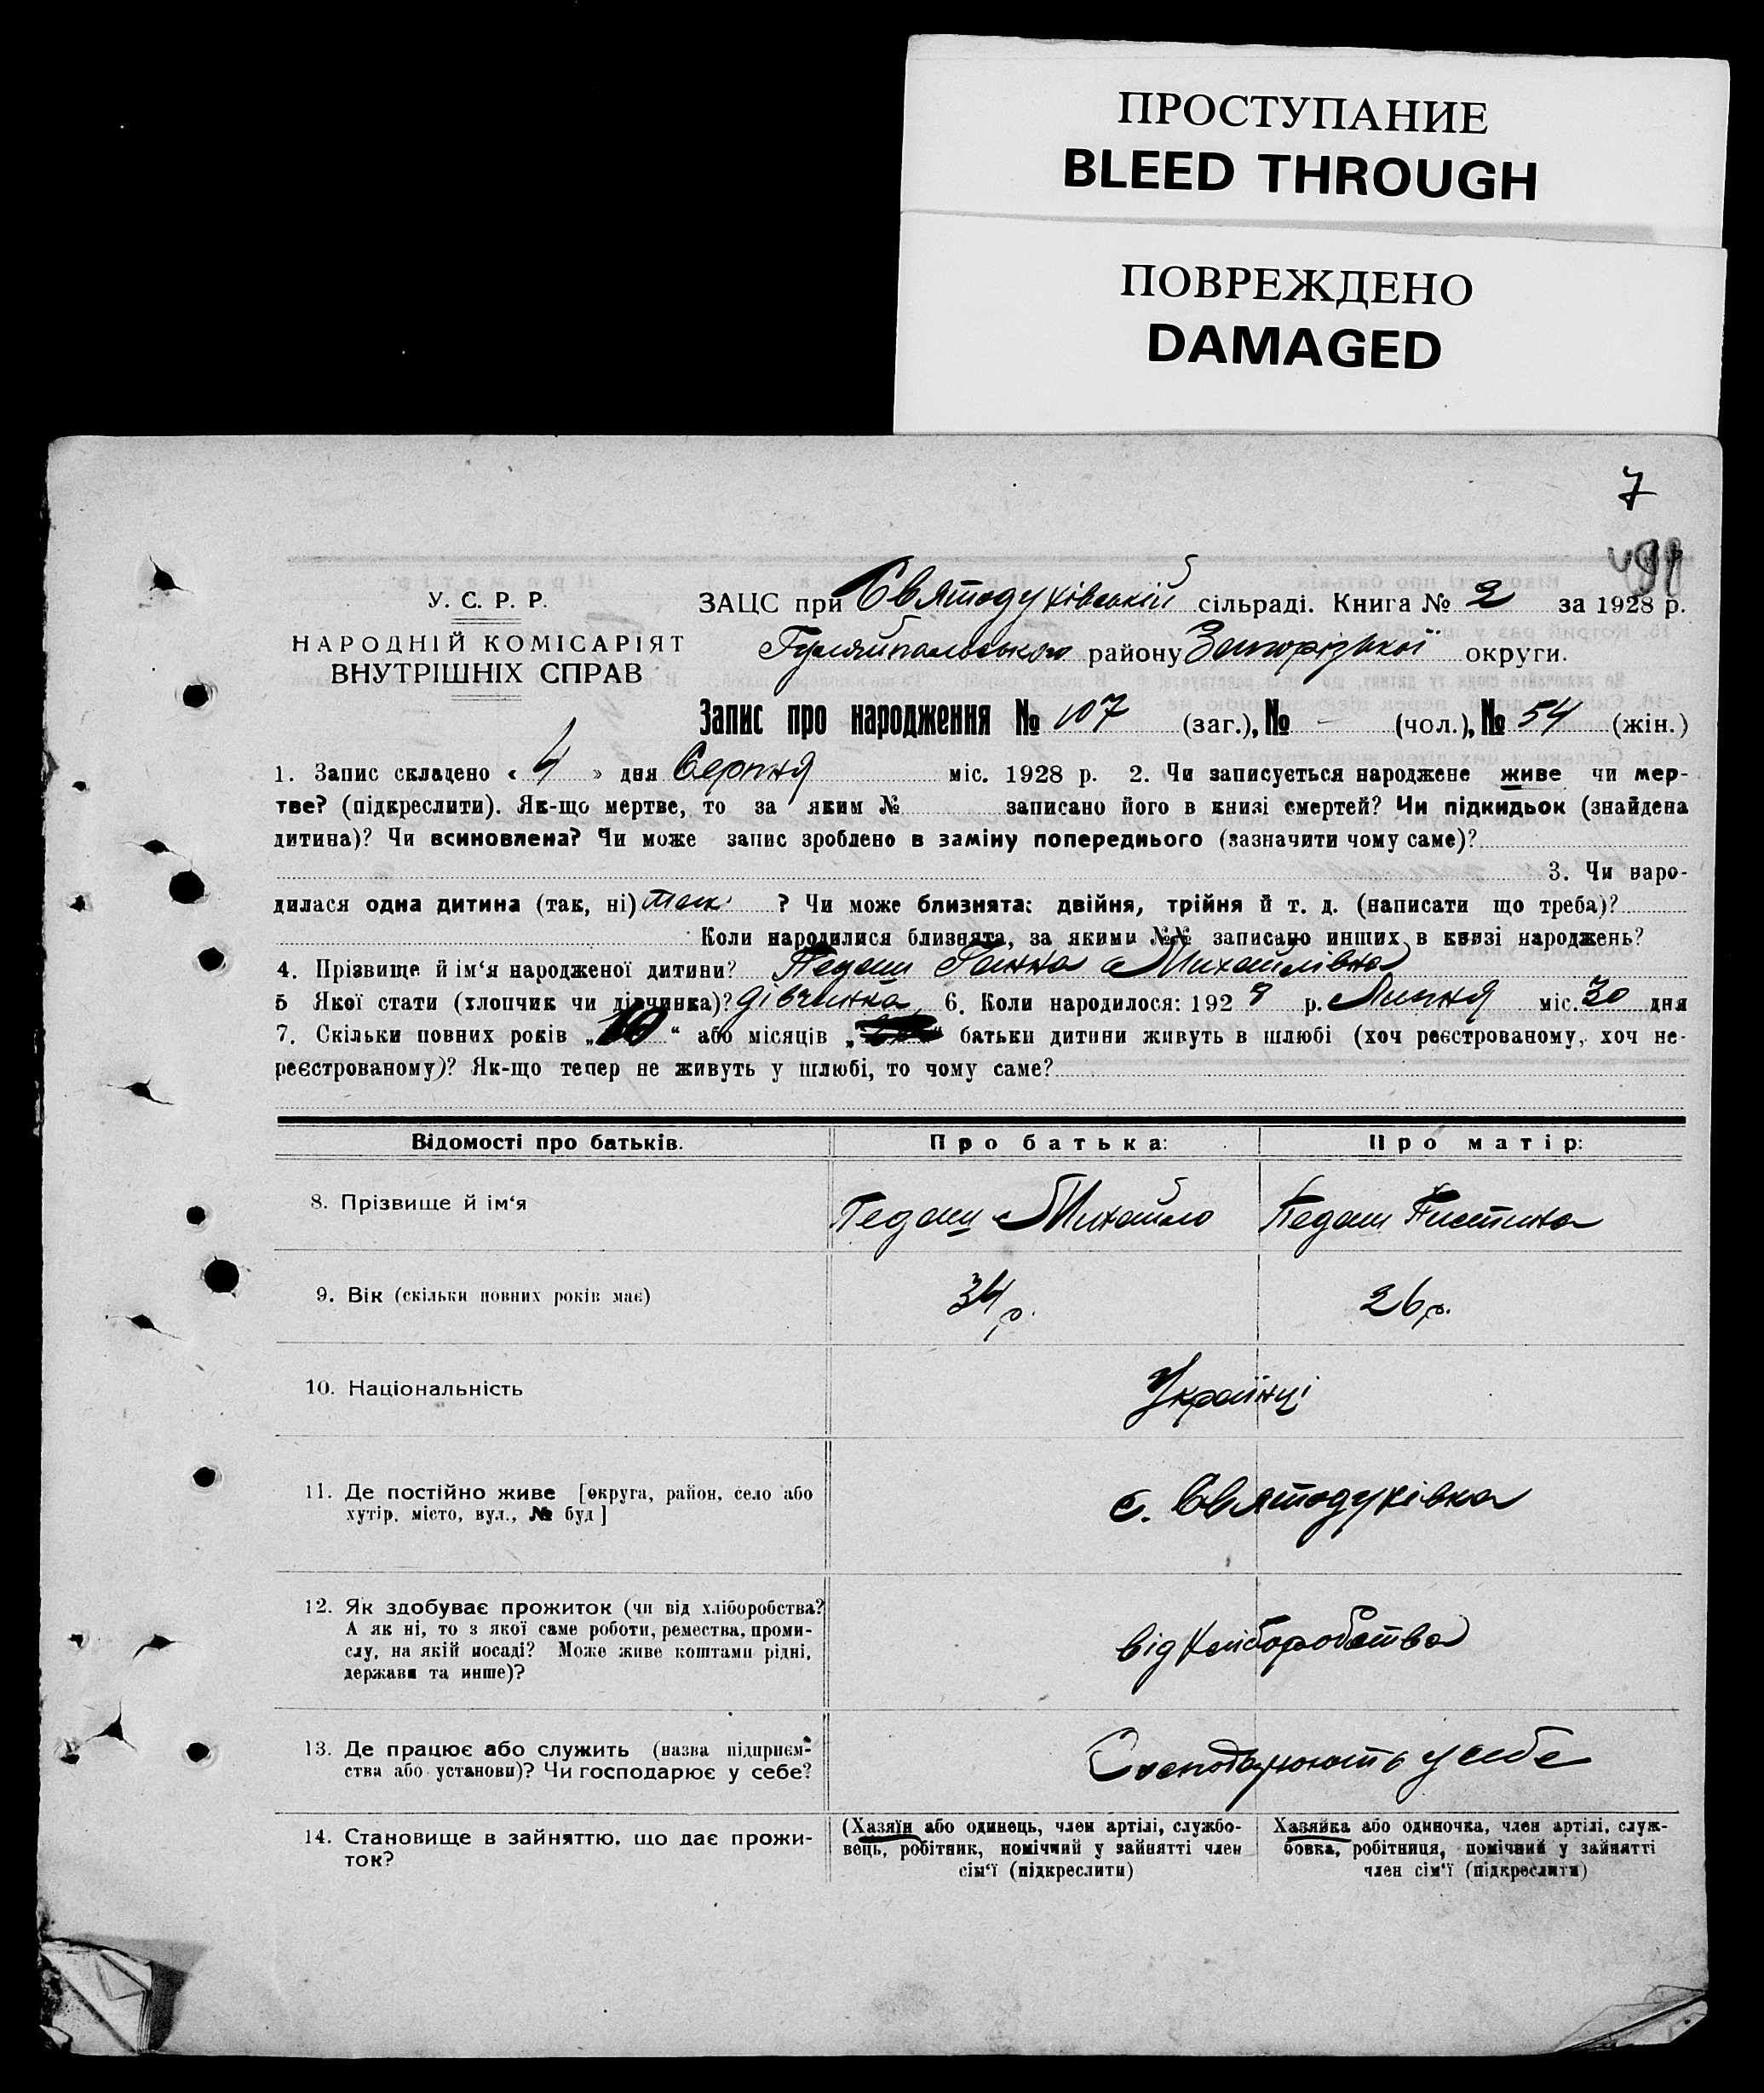 ПРОСТУПАНИЕ
BLEED THROUGH
ПОВРЕЖДЕНО
DAMAGED
7
У. С. Р. Р.
НАРОДНІЙ КОМІСАРІЯТ
ВНУТРІШНІХ СПРАВ
ЗАЦС при Святодухівській сільраді. Книга № 2 за 1928 р.
Гуляйпальського району Запорізької округи.
Запис про народження № 107 (заг.), № - (чол.), № 54 (жін.)
1. Запис складено « 4 » дня Серпня міс. 1928 р. 2. Чи записується народжене живе чи мер-
тве? (підкреслити). Як-що мертве, то за яким № записано його в книзі смертей? Чи підкидьок (знайдена
дитина)? Чи всиновлена? Чи може запис зроблено в заміну попереднього (зазначити чому саме)?
3. Чи наро-
дилася одна дитина (так, ні) так ? Чи може близнята: двійня, трійня й т. д. (написати що треба)?
Коли народилися близнята, за якими №№ записано инших в книзі народжень?
4. Прізвище й ім‘я народженої дитини? Педаш Ганна Михайлівна
5 Якої стати (хлопчик чи дівчинка)? дівчинка 6. Коли народилося: 192 8 р. Липня міс. 30 дня
7. Скільки повних років „10“ або місяців „ “ батьки дитини живуть в шлюбі (хоч реєстрованому, хоч не-
реєстрованому)? Як-що тепер не живуть у шлюбі, то чому саме?
Відомості про батьків. Про батька: Про матір:
8. Прізвище й ім‘я Педаш Михайло Педаш Пистина
9. Вік (скільки повних років має) 34 р. 26 р.
10. Національність Українці
11. Де постійно живе [округа, район, село або
хутір, місто, вул., № буд] с. Святодухівка
12. Як здобуває прожиток (чи від хліборобства?
А як ні, то з якої саме роботи, ремества, проми-
слу, на якій посаді? Може живе коштами рідні,
держави та инше)? від хліборобства
13. Де працює або служить (назва підприєм-
ства або установи)? Чи господарює у себе? Господарюють у себе
14. Становище в зайняттю, що дає прожи-
ток?
(Хазяїн або одинець, член артілі, службо-
вець, робітник, помічний у зайнятті член
сім‘ї (підкреслити)
Хазяйка або одиночка, член артілі, служ-
бовка, робітниця, помічний у зайнятті
член сім‘ї (підкреслити)